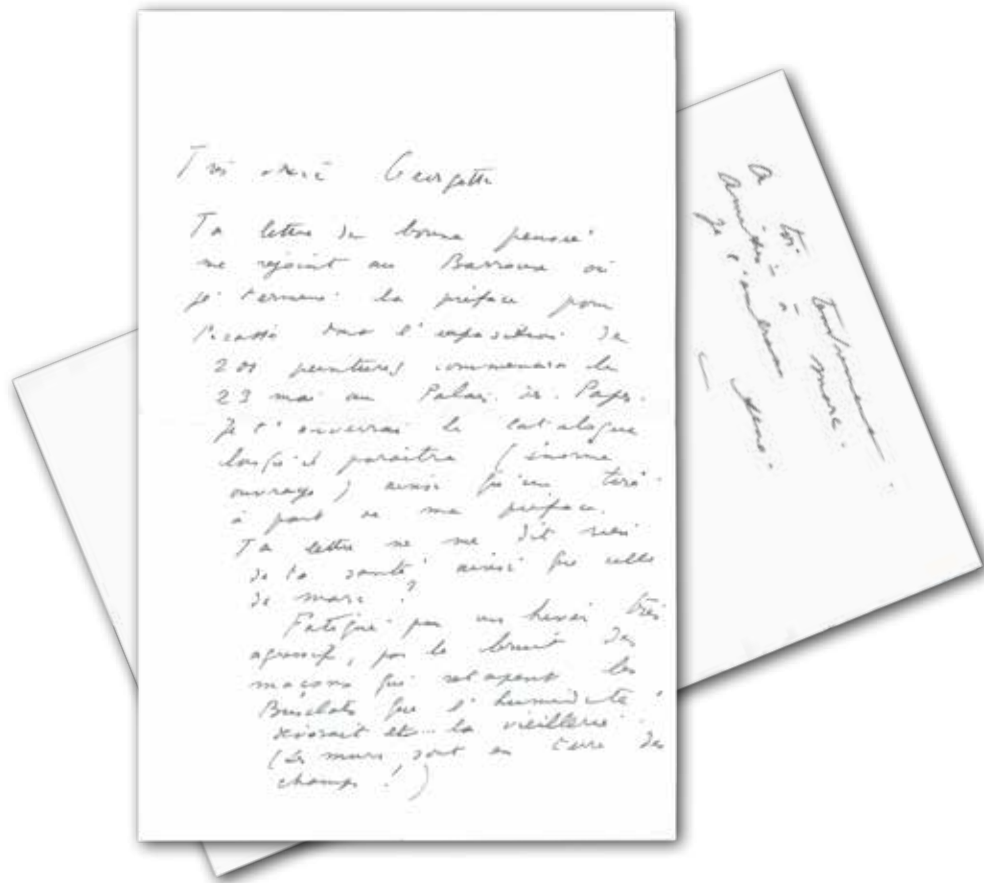 Très chère Georgette
Ta lettre de bonne pensée
me rejoint au Barroux où
je termine la préface pour
Picasso dont l'exposition de
201 peintures commencera le
23 mai au Palais des Papes.
Je t'enverrai le catalogue
lorsqu'il paraîtra (énorme
ouvrage) ainsi qu'un tiré
à part de ma préface.
Ta lettre ne me dit rien
de ta santé ainsi que celle
de Marc ?
Fatigué par un hiver très
agressif, par le bruit des
maçons qui retapent les
Busclats que l'humidité
dévorait et la vieillerie.
(Les murs sont en terre des
champs !)
A toi tendrement
Amitiés à Marc.
Je t'embrasse